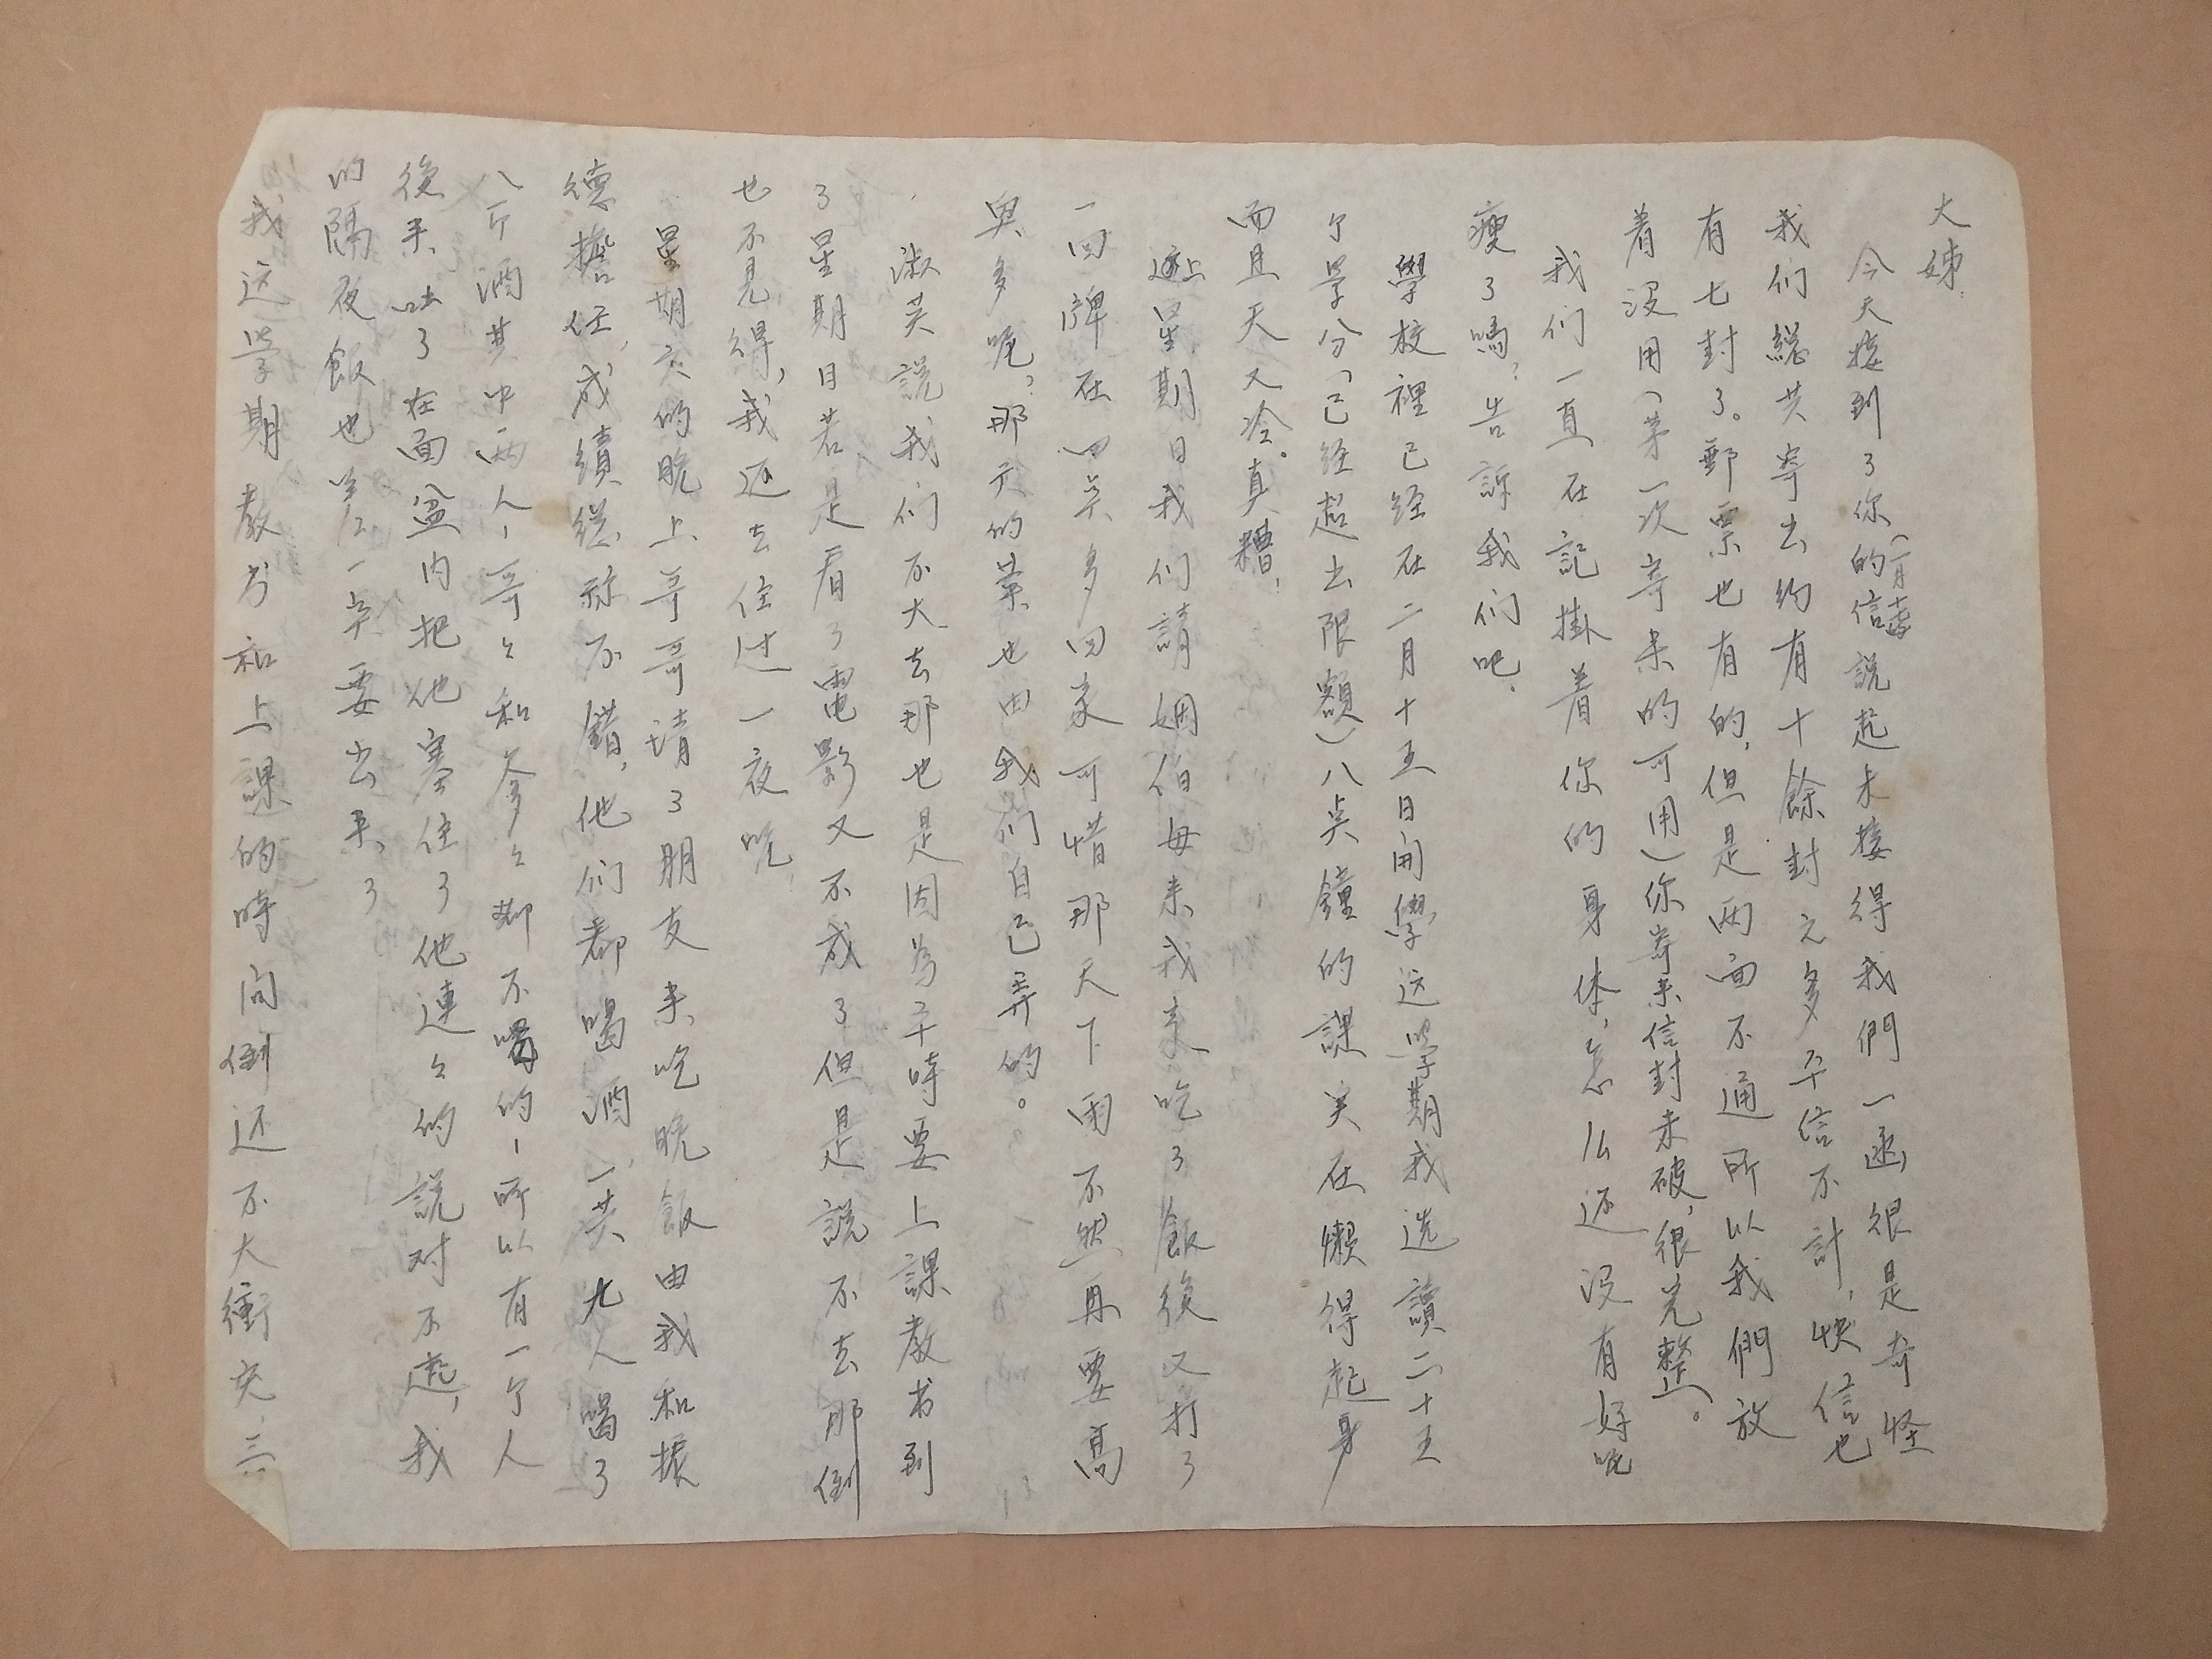 大姊：
今天接到了你的信(一月十二寄)說起未接得我們一函，很是奇怪
我们總共寄出約有十餘封之多平信不計，快信也
有七封了。郵票也有的，但是两面不通所以我們放
着没用（第一次寄来的可用）你寄来信封未破，很完整。
我们一直在記掛着你的身体，怎么还没有好呢
瘦了嗎？告訴我们吧．
學校裡已经在二月十五日開學，这學期我选讀二十五
个学分（已经超出限額）八点鐘的課实在懶得起身
而且天又冷。真糟，
上星期日我们請姻伯母来我家吃了飯後又打了
一回牌在四点多回家可惜那天下雨不然再要高
興多呢？那天的菜也由我们自己弄的。
淑英說我们不大去那也是因為平時要上課教书到
了星期日若是看了電影又不成了但是說不去那倒
也不見得，我还去住过一夜呢．
星期六的晚上哥哥请了朋友来吃晚飯由我和振
德擔任，成績総祘不錯，他们都喝酒，一共九人喝了
八斤酒其中两人－哥々和爹々都不喝的－所以有一个人
後来吐了在面盆内把他塞住了他連々的說对不起，我
的隔夜飯也差一点要出来了
我这学期教书和上課的時间倒还不大衝突，三